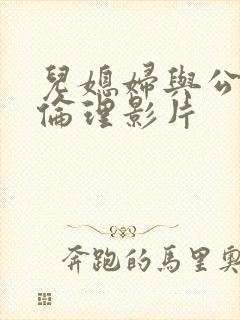 兒媳婦與公
倫理影片
奔跑的馬里奧